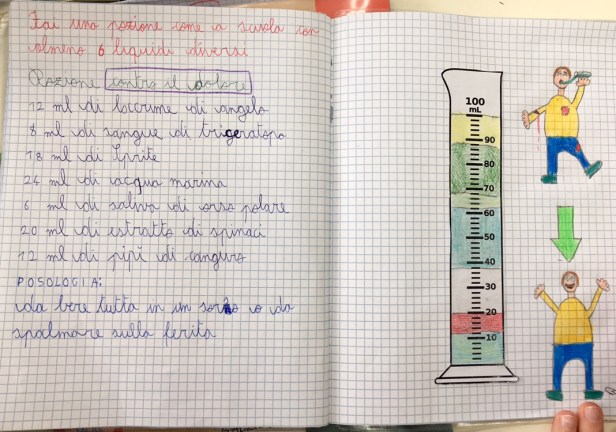 Fai una pozione come a scuola con
almeno 6 liquidi diversi
Pozione contro il dolore
12 ml di lacrime di angelo
8 ml di sangue di trigeratopo
18 ml di Sprite
24 ml di acqua marina
6 ml di saliva di orso polare
20 ml di estratto di spinaci
12 ml di pipì di canguro
POSOLOGIA:
da bere tutta in un sorso o da
spalmare sulla ferita
100
mL
90
80
70
60
50
40
30
20
10